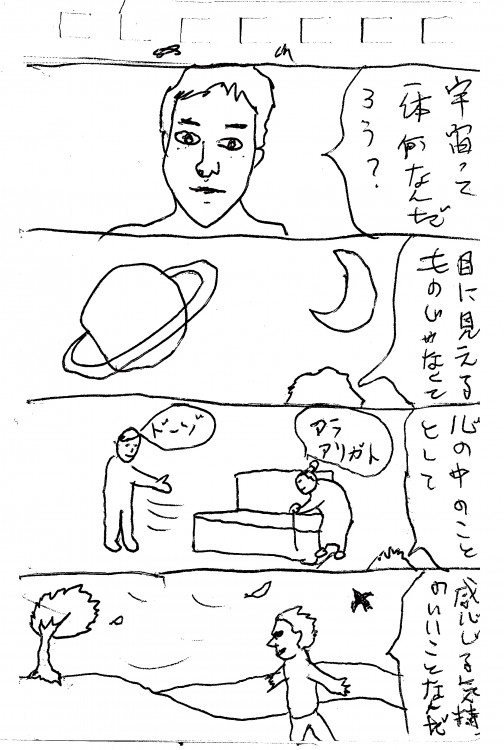 宇宙って
一体何なんだ
ろう？
目に見える
ものじゃなくて
心の中のこと
として
ドーゾ
アラ
アリガト
感じる気持
のいいことなんだ